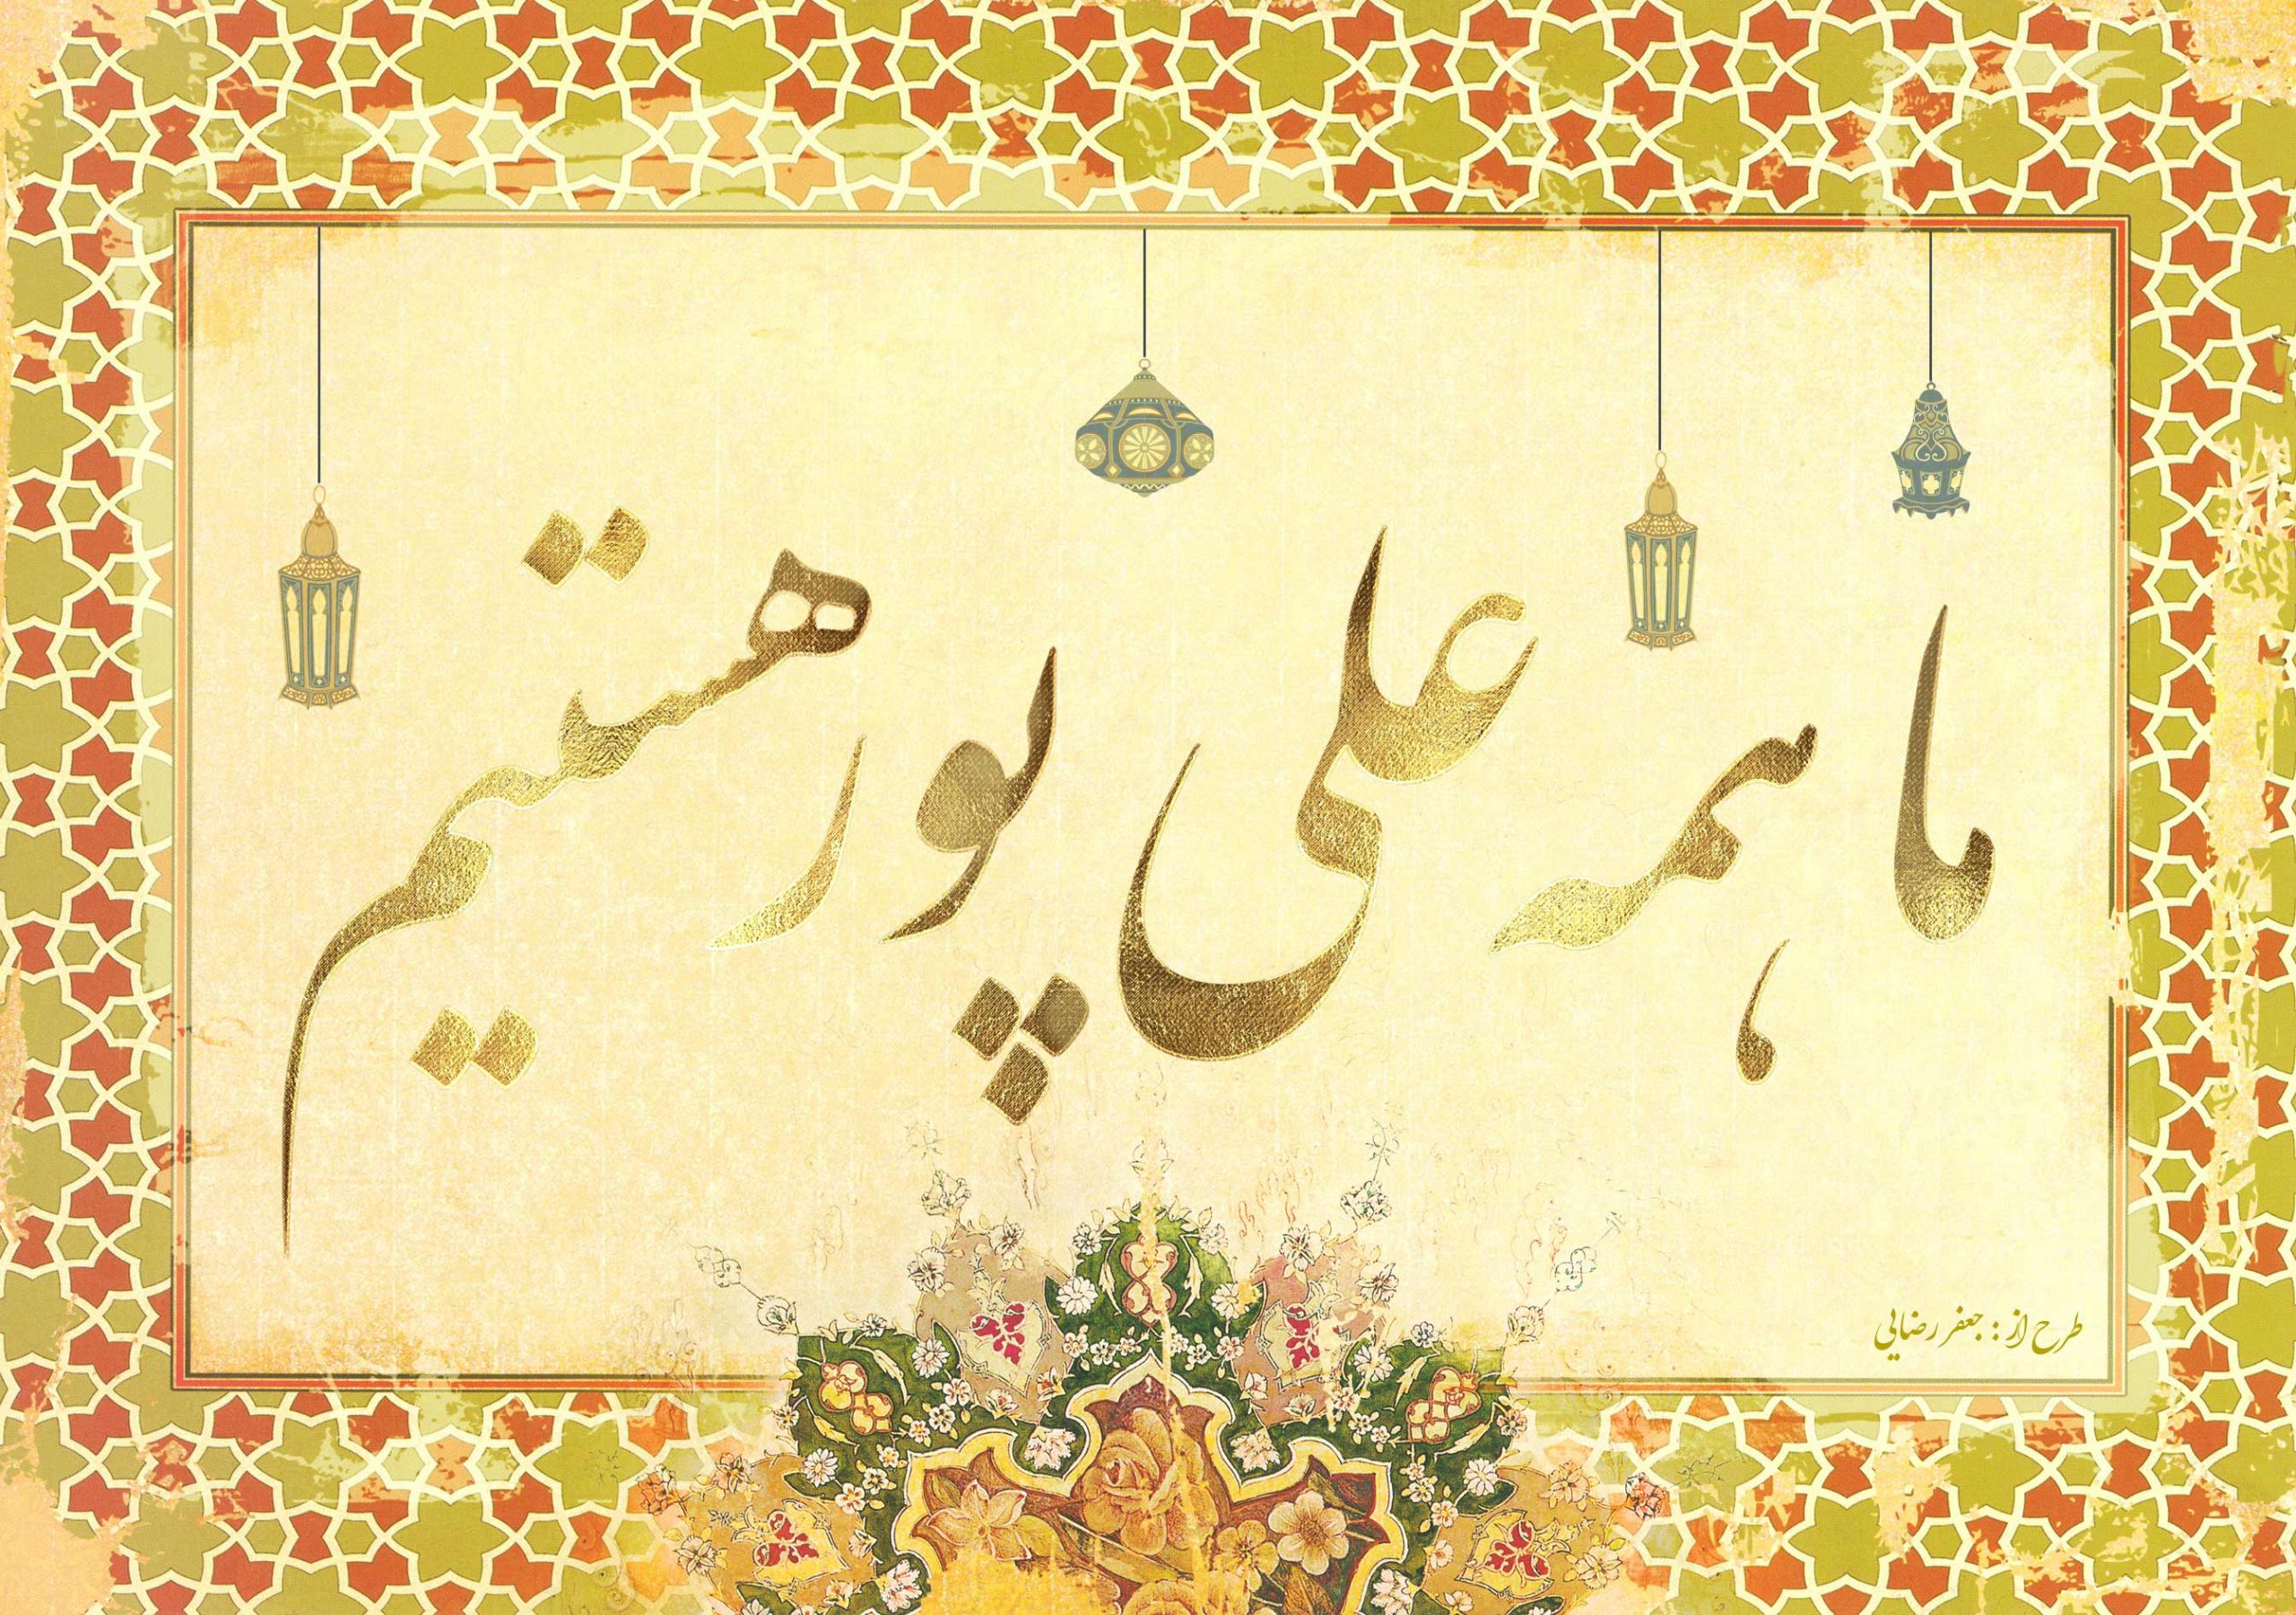 ما همه علی پور هستیم
طرح از : جعفر رضایی